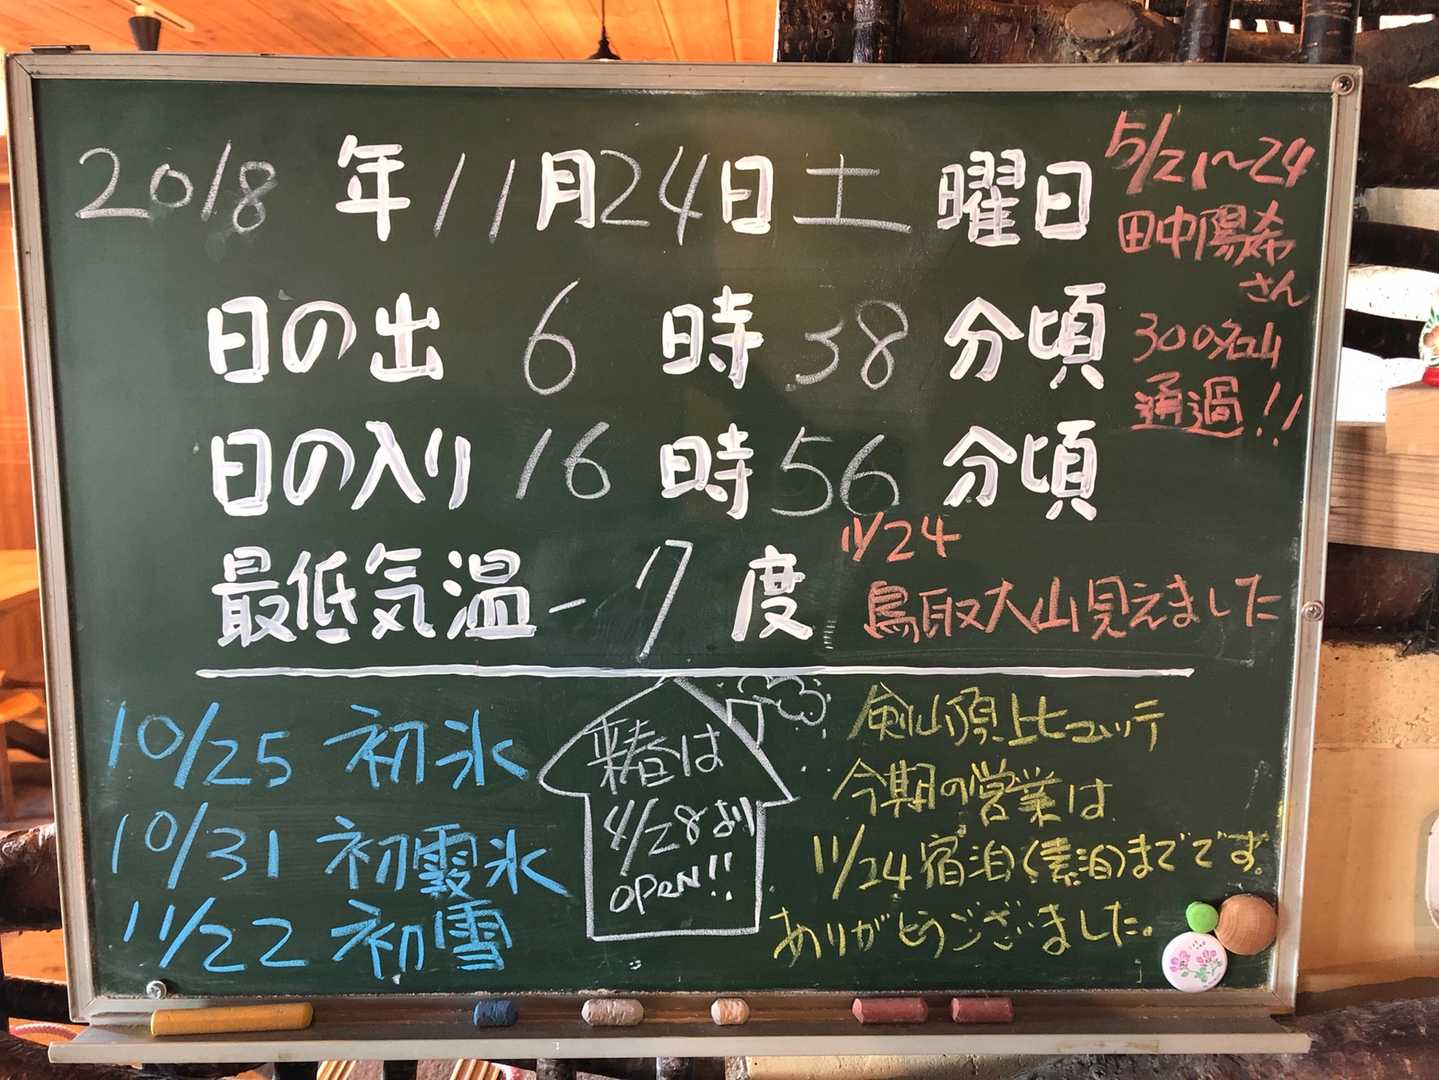 2018年11月24日土曜日
日の出 6時38分頃
日の入り 16時56分頃
最低気温 -7度
5/21～24
田中陽希
さん
300名山
通過!!
11/24
鳥取大山見えました
10/25 初氷
10/31 初霧氷
11/22 初雪
来春は
4/28より
OPEN!!
剣山頂上ヒュッテ
今期の営業は
11/24宿泊(素泊)までです。
ありがとうございました。